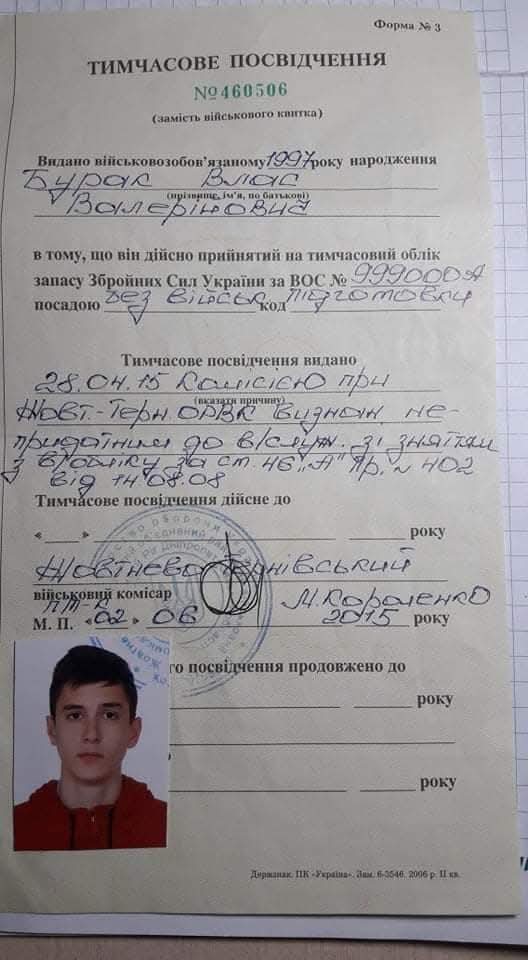 Форма № 3
ТИМЧАСОВЕ ПОСВІДЧЕННЯ
№460506
(замість військового квитка)
Видано військовозобов'язаному 1997 року народження
Бурак Влас
(прізвище, ім'я, по батькові)
Валерійович
в тому, що він дійсно прийнятий на тимчасовий облік
запасу Збройних Сил України за ВОС № 999000А
посадою без військ код підготовки
Тимчасове посвідчення видано
28.04.15 Комісією при
(вказати причину)
Жовт.-Терн. ОРВК визнан не-
придатним до в/служ. зі зняттям
з в/обліку за ст. 46 "А" Пр. № 402
від 14 08.08
Тимчасове посвідчення дійсне до
« » року
Жовтнево-Тернівський
військовий комісар
п/п-к М. Короленко
М. П. «02» 06 2015 року
го посвідчення продовжено до
року
року
Держзнак. ПК «Україна». Зам. 6-3546. 2006 р. II кв.